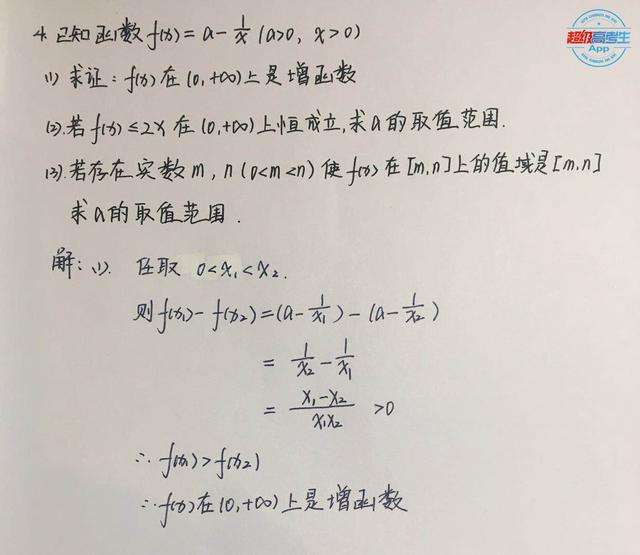 超级高考生
App
4. 已知函数 f(x) = a - 1/x (a>0, x>0)
(1) 求证: f(x) 在 (0, +∞) 上是增函数
(2) 若 f(x) ≤ 2x 在 (0, +∞) 上恒成立, 求 a 的取值范围.
(3) 若存在实数 m, n (0<m<n) 使 f(x) 在 [m, n] 上的值域是 [m, n]
求 a 的取值范围.
解: (1). 任取 0<x₁<x₂.
则 f(x₁) - f(x₂) = (a - 1/x₁) - (a - 1/x₂)
= 1/x₂ - 1/x₁
= (x₁ - x₂)/(x₁x₂) >0
∴ f(x₁) > f(x₂)
∴ f(x) 在 (0, +∞) 上是增函数